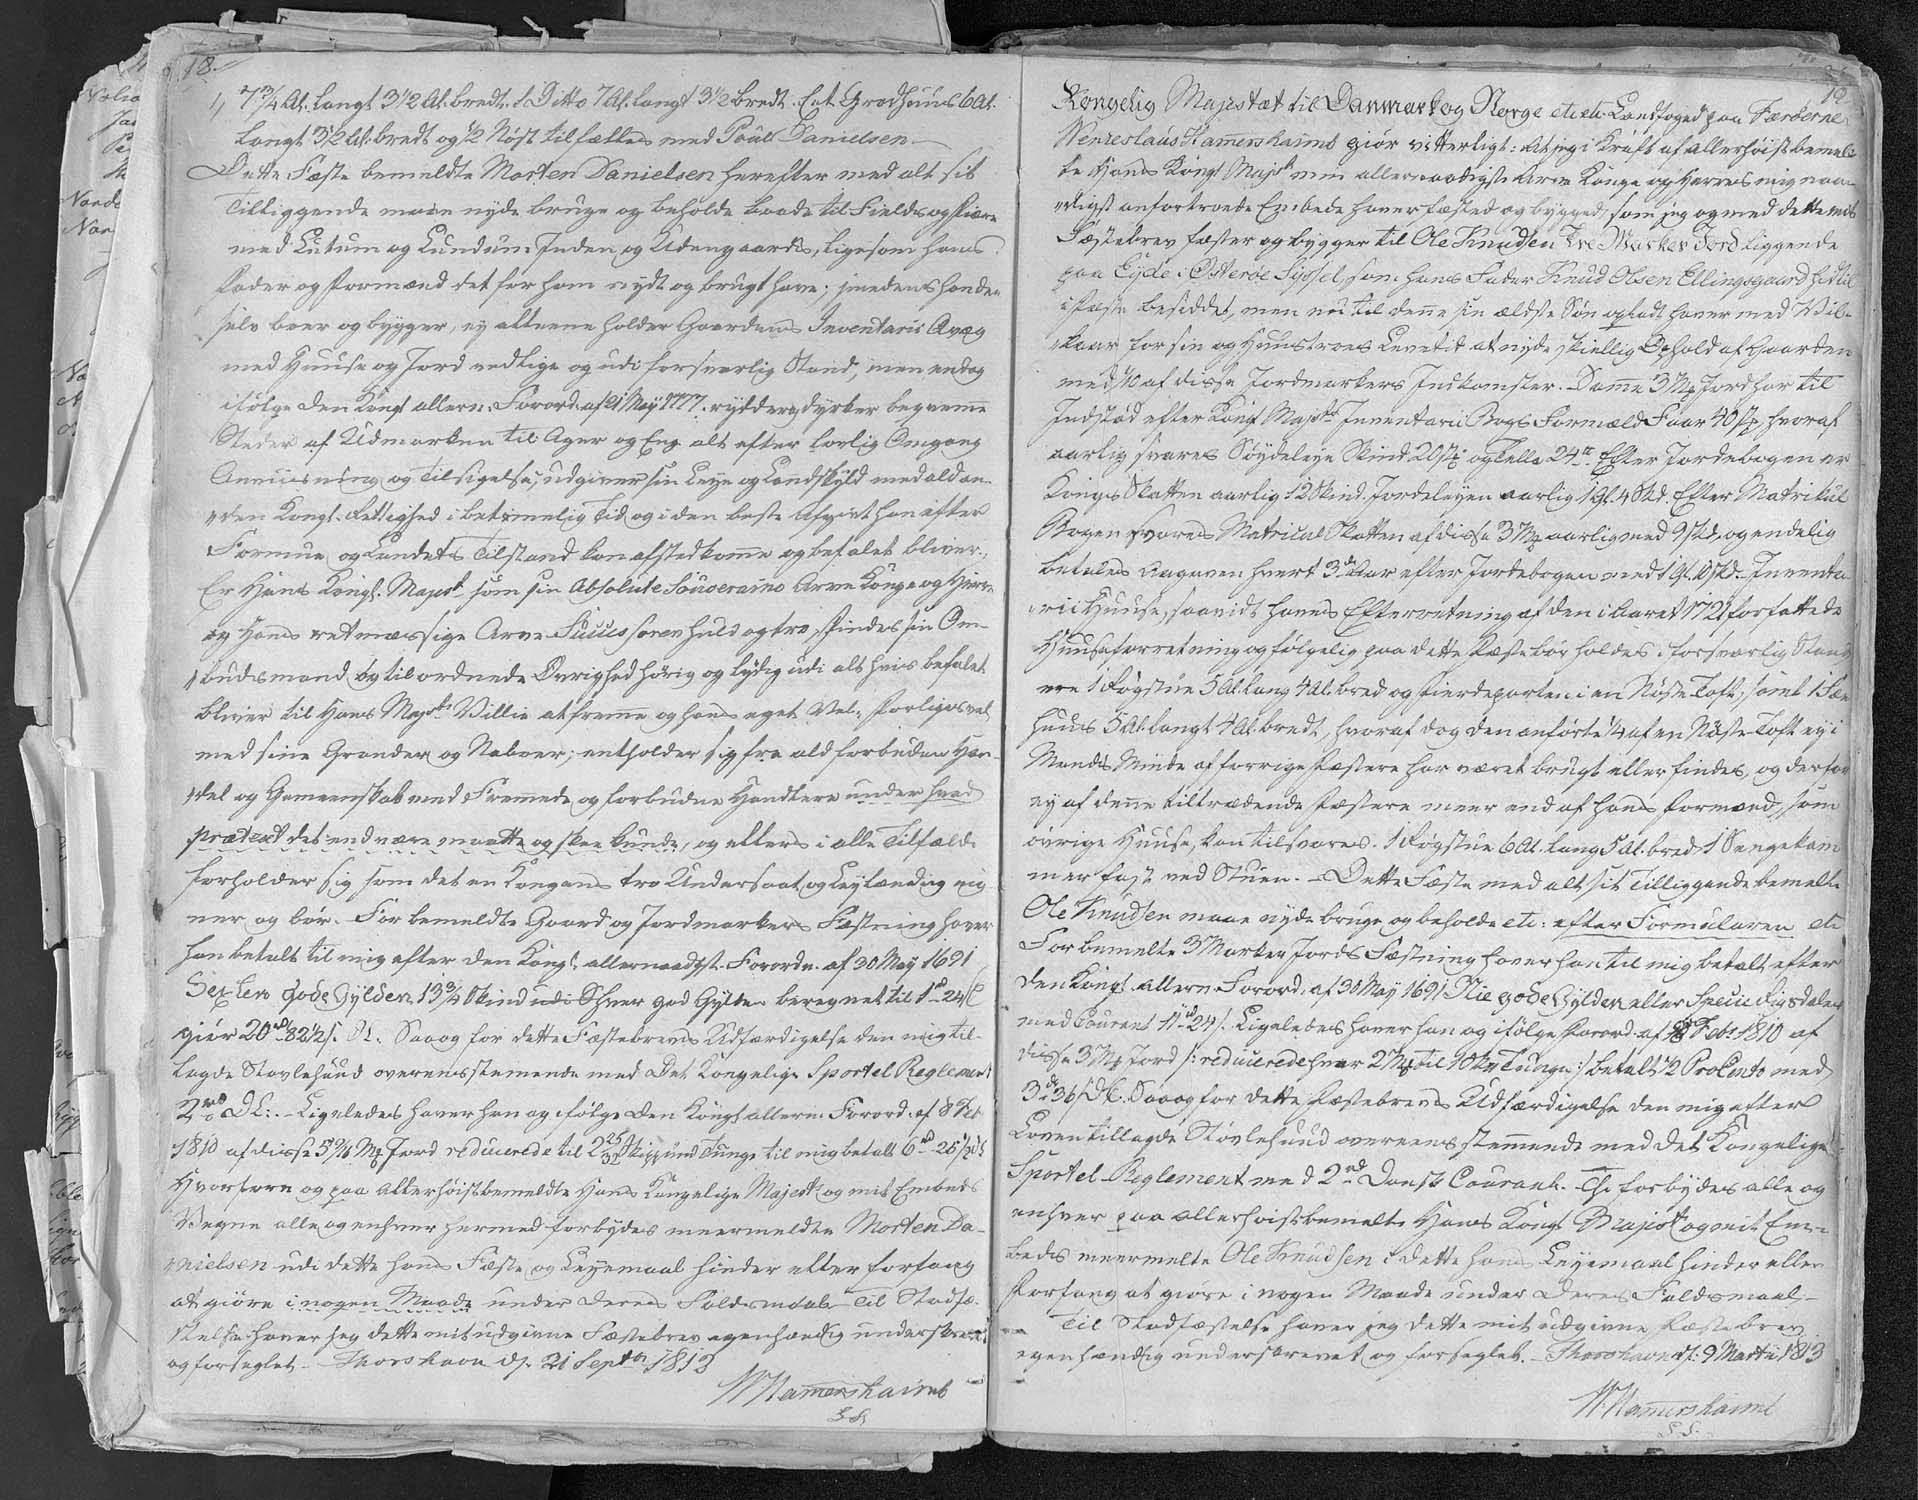 18.
7 3/4 Al. langt 3 1/2 Al. bredt. 1 Ditto 7 Al. langt 3 1/2 bredt. Eet Grodhuus 6 Al.
langt 3 1/2 Al. bredt og 1/2 Nøst tilfælles med Poul Danielsen
Dette Fæste bemeldte Morten Danielsen herefter med alt sit
Tilliggende maae nyde bruge og beholde baade til Fields og Fiære
med Lutum og Lundum Inden og Udengaards, ligesom hans
Fader og Formænd det for ham nydt og brugt have; imedens han den
selv boer og bygger, ey alleene holder Gaardens Inventarii Qvæg
med Huuse og Jord vedlige og udi forsvarlig Stand, men endog
ifølge den Kongl. allern. Forord. af 21 May 1777. rydder og dyrker beqvemme
Steder af Udmarken til Ager og Eng alt efter lovlig Omgang
Anviisning og Tilsigelse, udgiver sin Leye og Landskyld med ald an-
den Kongl. Rettighed i betimelig Tid og i den beste Afgivt han efter
Formue og Landets Tilstand kan afstedkomme og befalet bliver.
Er Hans Kongl. Majest. som sin Absolute Souveraine Arve Konge og Herre
og Hans retmæssige Arve Successorer huld og troe, findes sin Om-
budsmand og tilordnede Øvrighed hörig og lydig udi alt hvis befalet
bliver til Hans Majsts Villie at fremme og hans eget Vel; forliges vel
med sine Grander og Naboer; entholder sig fra ald forbuden Han-
del og Gemeenskab med Fremmede og forbudne Handlere under hvad
prætext det end være maatte og skee kunde, og ellers i alle Tilfælde
forholder sig som det en Kongens tro Undersaat og Leylænding eig-
ner og bör. For bemeldte Gaard og Jordmarkers Fæstning haver
han betalt til mig efter den Kongl. allernaadigst. Forordn. af 30 May 1691
Sexten gode Gylden 13 3/4 Skind udi Ehver god Gylden beregnet til 1 rd 24 s
giör 20 rd 82 1/2 s. Saa og for dette Fæstebrevs Udfærdigelse den mig til-
lagde Stavlehuud overensstemmende med Det Kongelige Sportel Reglement
2 rd DC. Ligeledes haver han og ifølge den Kongl. allern. Forord. af 8 Feb
1810 af disse Mk Jord reducerede til Skippund Tunge til mig betalt 6 rd
Hvorforre og paa Allerhöistbemeldte Hans Kongelige Majests og mit Embeds
Vegne alle og enhver hermed forbydes meermeldte Morten Da-
nielsen udi dette hans Fæste og Leyemaal hinder eller forfang
at giöre i nogen Maade under deres Faldsmaal. Til Stadfæ-
stelse haver jeg dette mit udgivne Fæstebrev egenhændig underskrevet
og forseglet. Thorshavn d. 21 Septbr 1813
W Hamershaimb
LS.
19
Kongelig Majestæt til Danmark og Norge etc. etc. Landfoged paa Færöerne
Wenceslaus Hamershaimb giör vitterligt: At jeg i Kraft af Allerhöistbemeld-
te Hans Kongl. Majsts min allernaadigste Arve Konge og Herres mig naa-
digst anfortroede Embede haver fæsted og bygged, som jeg og med dette mit
Fæstebrev fæster og bygger til Ole Knudsen Tre Marker Jord liggende
paa Eyde i Österöe Syssel, som hans Fader Knud Olsen Ellingsgaard hidtil
i Fæste besiddet, men nu til denne sin ældste Sön opladt haver med Vil-
kaar for sin og Huustroes Levetid at nyde skiellig Ophold af Gaarden
med 1/10 af disse Jordmarkers Indkomster. Samme 3 Mk Jord har til
Indstöd efter Kongl. Majsts Inventarii Bogs Formæld Faar 40 st., hvoraf
aarlig svares Söydeleye Skind 20 st. og Telle 24 rr. Efter Jordebogen er
Konges Skatten aarlig 12 Skind. Jordeleyen aarlig 1 Gl. 4 Skd. Efter Matrikul
Bogen svares Matricul Skatten af disse 3 Mk aarlig med 9 skd, og endelig
betales Aagaven hvert 3de Aar efter Jordebogen med 1 Gl. 10 Skd. Inventa-
rii Huuse, saavidt haves Efterretning af den i Aaret 1721 forfattede
Huusaforretning og fölgelig paa dette Fæste bör holdes i forsvarlig Stand
ere 1 Rögstue 5 Al. lang 4 Al. bred og fierdeparten i en Nöste Toft; samt 1 Fæ-
huus 5 Al. langt 4 Al. bredt, hvoraf dog den anförte 1/4 af en Nöste Toft ey i
Mands Minde af forrige Fæstere har været brugt eller findes, og derfor
ey af denne tiltrædende Fæstere meer end af hans Formænd, som
övrige Huuse, kan tilsvares. 1 Rögstue 6 Al. lang 5 Al. bred 1 Sengekam-
mer fast ved Stuen. Dette Fæste med alt sit Tilliggende bemelte
Ole Knudsen maae nyde bruge og beholde etc: efter Formularen etc
For bemelte 3 Marker Jords Fæstning haver han til mig betalt efter
den Kongl. allern. Forord. af 30 May 1691 Nie gode Gylden eller Specie Rigsdaler
med Courant 11 rd 24 s. Ligeledes haver han og ifölge Forord. af 8 Febr 1810 af
disse 3 Mk Jord /: reducerede hver 2 Mk til 1 Tunge :/ betalt 1/2 ProCento med
3 rd 36 s DC. Saa og for dette Fæstebrevs Udfærdigelse den mig efter
Loven tillagde Stövlehuud overeensstemmende med det Kongelige
Sportel Reglement med 2 rd Dansk Courant. Thi forbydes alle og
enhver paa Allerhöistbemelte Hans Kongl. Majsts og mit Em-
beds meermelte Ole Knudsen i dette hans Leyemaal hinder eller
Forfang at giöre i nogen Maade under deres Faldsmaal,
Til Stadfæstelse haver jeg dette mit udgivne Fæstebrev
egenhændig underskrevet og forseglet. Thorshavn d. 9 Martii 1813
W. Hamershaimb
L.S.